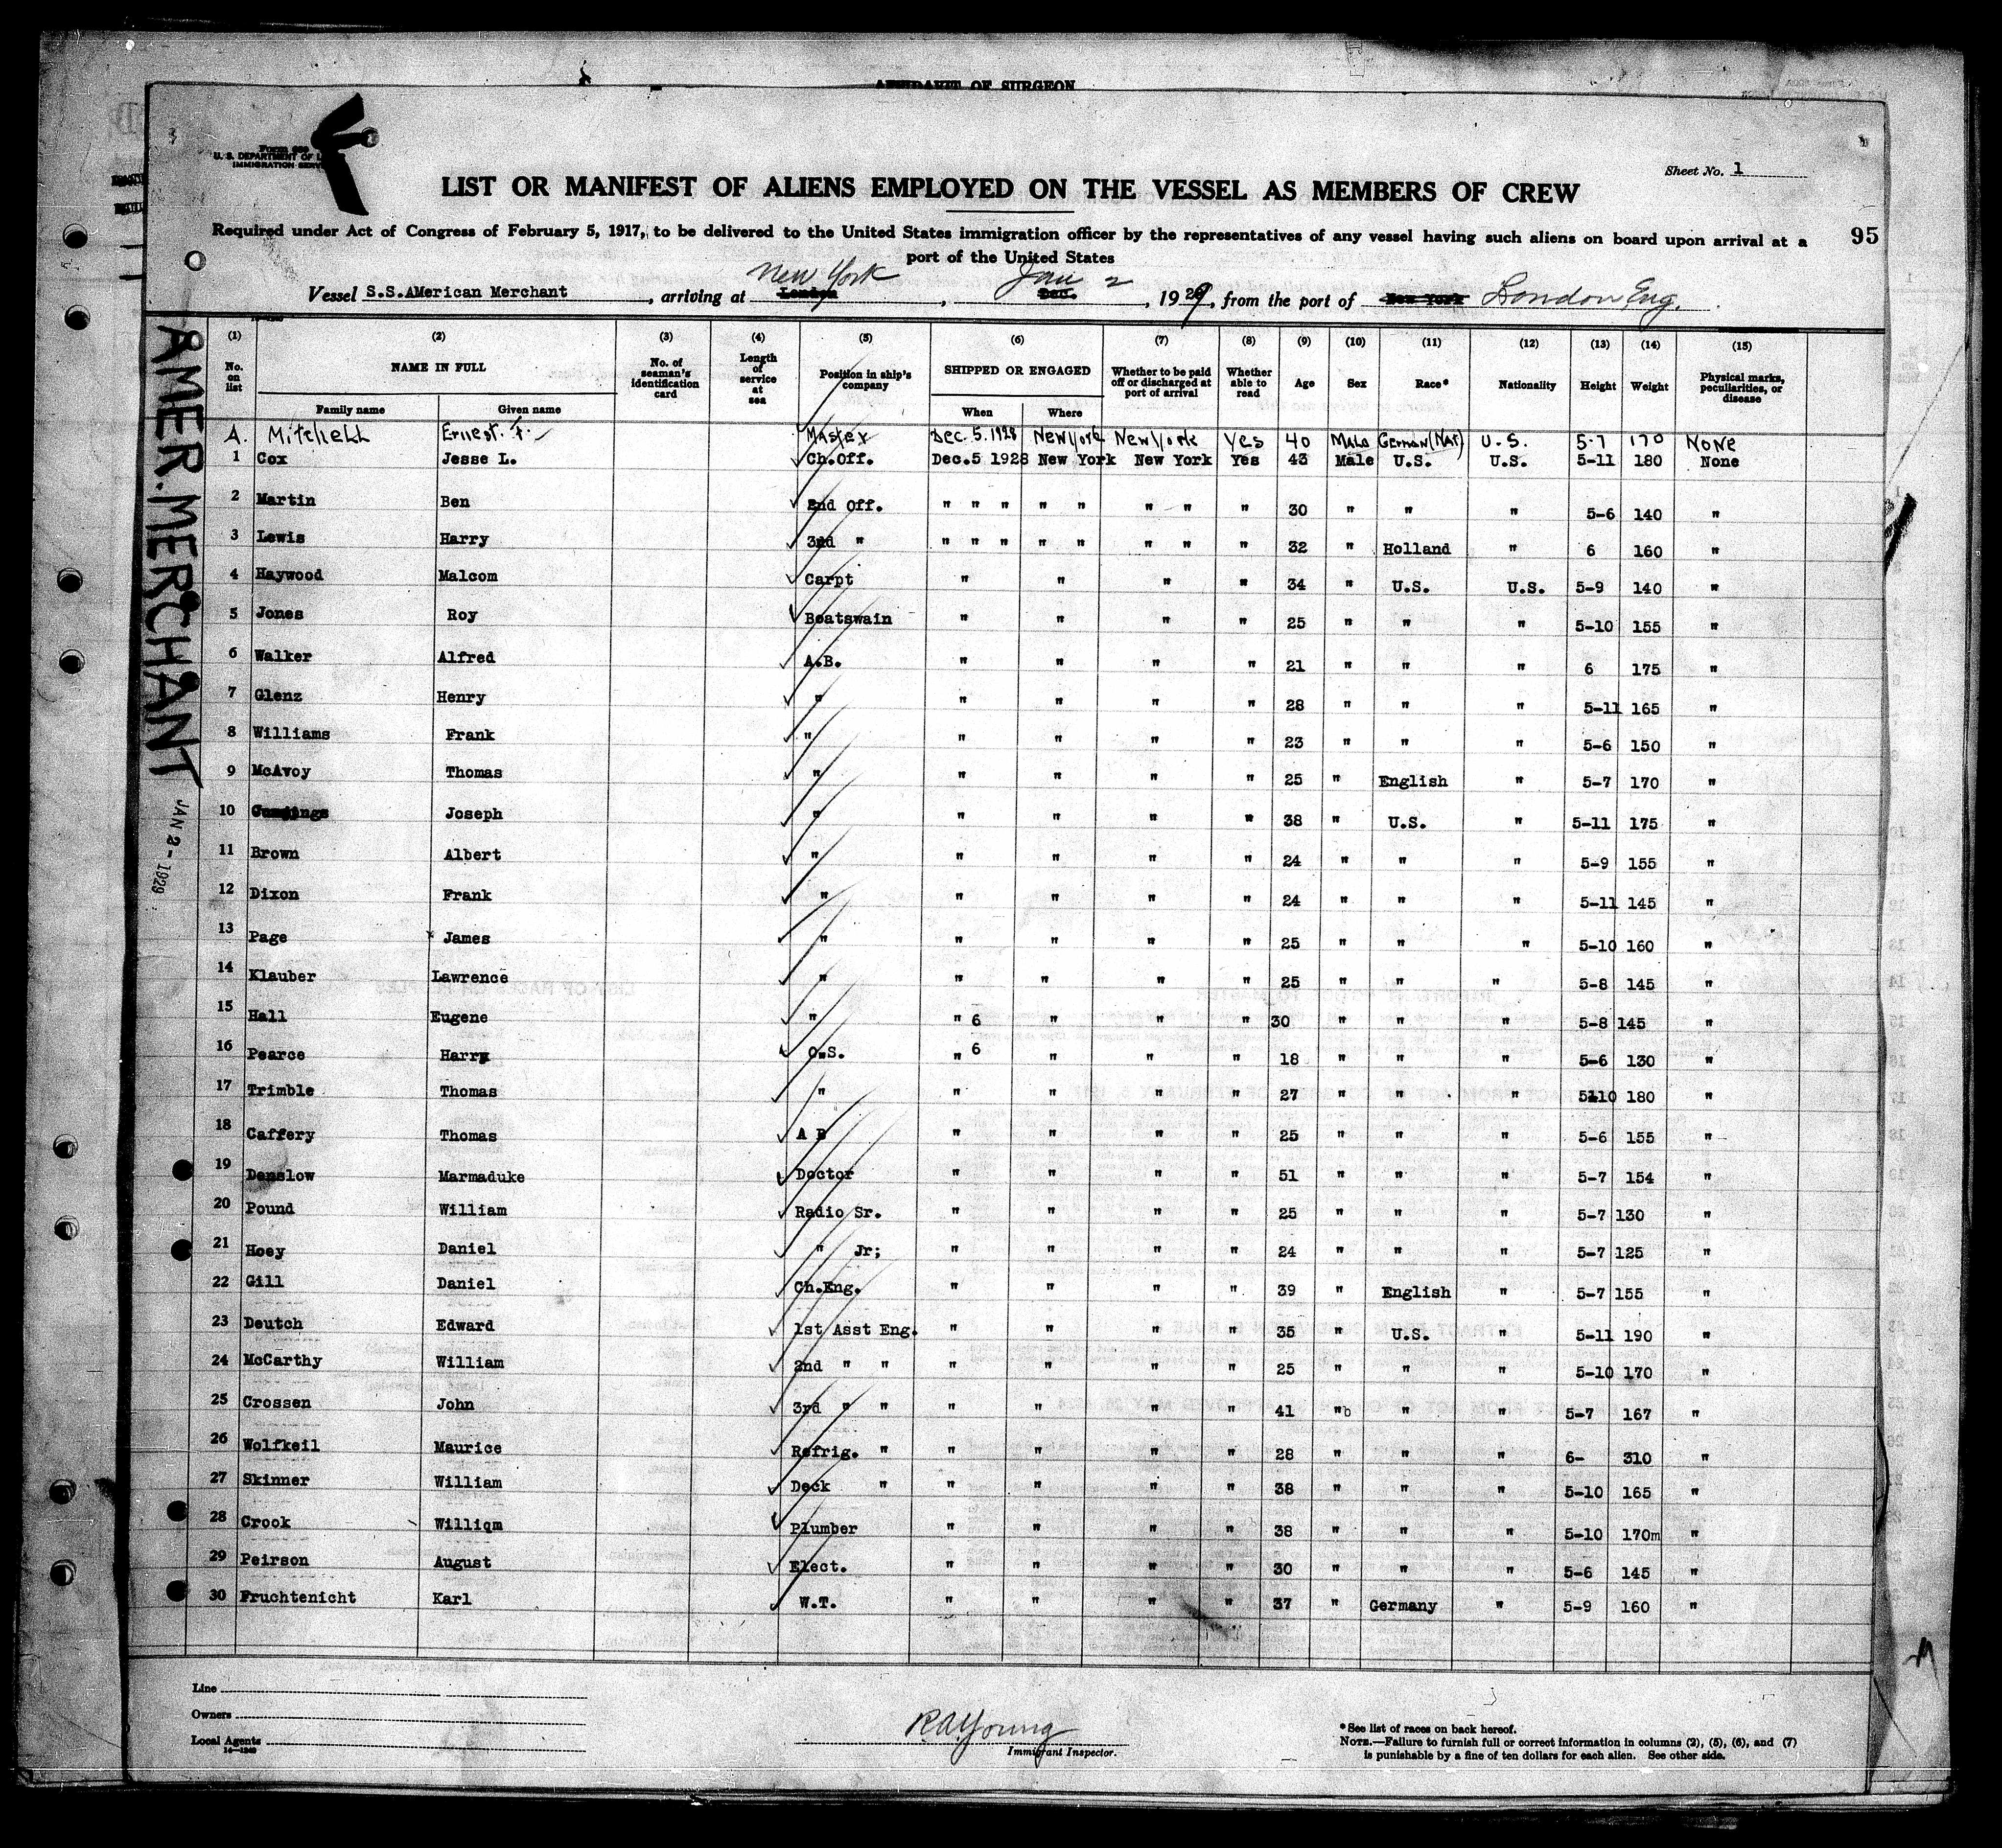 AFFIDAVIT OF SURGEON
U. S. DEPARTMENT OF
IMMIGRATION
Sheet No. 1
LIST OR MANIFEST OF ALIENS EMPLOYED ON THE VESSEL AS MEMBERS OF CREW
Required under Act of Congress of February 5, 1917, to be delivered to the United States immigration officer by the representatives of any vessel having such aliens on board upon arrival at a
port of the United States
95
Vessel S.S.AMerican Merchant, arriving at London New York, Dec. Jan 2, 1929, from the port of New York London Eng.
AMER. MERCHANT JAN 2 - 1929
(1) (2) (3) (4) (5) (6) (7) (8) (9) (10) (11) (12) (13) (14) (15)
No. on list NAME IN FULL No. of seaman's identification card Length of service at sea Position in ship's company SHIPPED OR ENGAGED Whether to be paid off or discharged at port of arrival Whether able to read Age Sex Race* Nationality Height Weight Physical marks, peculiarities, or disease
Family name Given name When Where
A. Mitchell Ernest. F. Master Dec. 5. 1928 New York New York Yes 40 Male German (Nat) U.S. 5-7 170 None
1 Cox Jesse L. Ch.Off. Dec.5 1928 New York New York Yes 43 Male U.S. U.S. 5-11 180 None
2 Martin Ben 2nd Off. " " " " " " " " 30 " " " 5-6 140 "
3 Lewis Harry 3nd " " " " " " " " " 32 " Holland " 6 160 "
4 Haywood Malcom Carpt " " " " 34 " U.S. U.S. 5-9 140 "
5 Jones Roy Boatswain " " " " 25 " " " 5-10 155 "
6 Walker Alfred A.B. " " " " 21 " " " 6 175 "
7 Glenz Henry " " " " " 28 " " " 5-11 165 "
8 Williams Frank " " " " " 23 " " " 5-6 150 "
9 McAvoy Thomas " " " " " 25 " English " 5-7 170 "
10 Joseph " " " " " 38 " U.S. " 5-11 175 "
11 Brown Albert " " " " " 24 " " " 5-9 155 "
12 Dixon Frank " " " " " 24 " " " 5-11 145 "
13 Page James " " " " " 25 " " " 5-10 160 "
14 Klauber Lawrence " " " " " 25 " " " 5-8 145 "
15 Hall Eugene " " 6 " " " 30 " " " 5-8 145 "
16 Pearce Harry O.S. " 6 " " " 18 " " " 5-6 130 "
17 Trimble Thomas " " " " " 27 " " " 5110 180 "
18 Caffery Thomas A B " " " " 25 " " " 5-6 155 "
19 Denslow Marmaduke Doctor " " " " 51 " " " 5-7 154 "
20 Pound William Radio Sr. " " " " 25 " " " 5-7 130 "
21 Hoey Daniel " Jr; " " " " 24 " " " 5-7 125 "
22 Gill Daniel Ch.Eng. " " " " 39 " English " 5-7 155 "
23 Deutch Edward 1st Asst Eng. " " " " 35 " U.S. " 5-11 190 "
24 McCarthy William 2nd " " " " " " 25 " " " 5-10 170 "
25 Crossen John 3rd " " " " " " 41 " " " 5-7 167 "
26 Wolfkeil Maurice Refrig. " " " " " 28 " " " 6- 310 "
27 Skinner William Deck " " " " " 38 " " " 5-10 165 "
28 Crook Williqm Plumber " " " " 38 " " " 5-10 170m "
29 Peirson August Elect. " " " " 30 " " " 5-6 145 "
30 Fruchtenicht Karl W.T. " " " " 37 " Germany " 5-9 160 "
Line
Owners
Local Agents
RAYoung
Immigrant Inspector.
*See list of races on back hereof.
NOTE.—Failure to furnish full or correct information in columns (2), (5), (6), and (7)
is punishable by a fine of ten dollars for each alien. See other side.